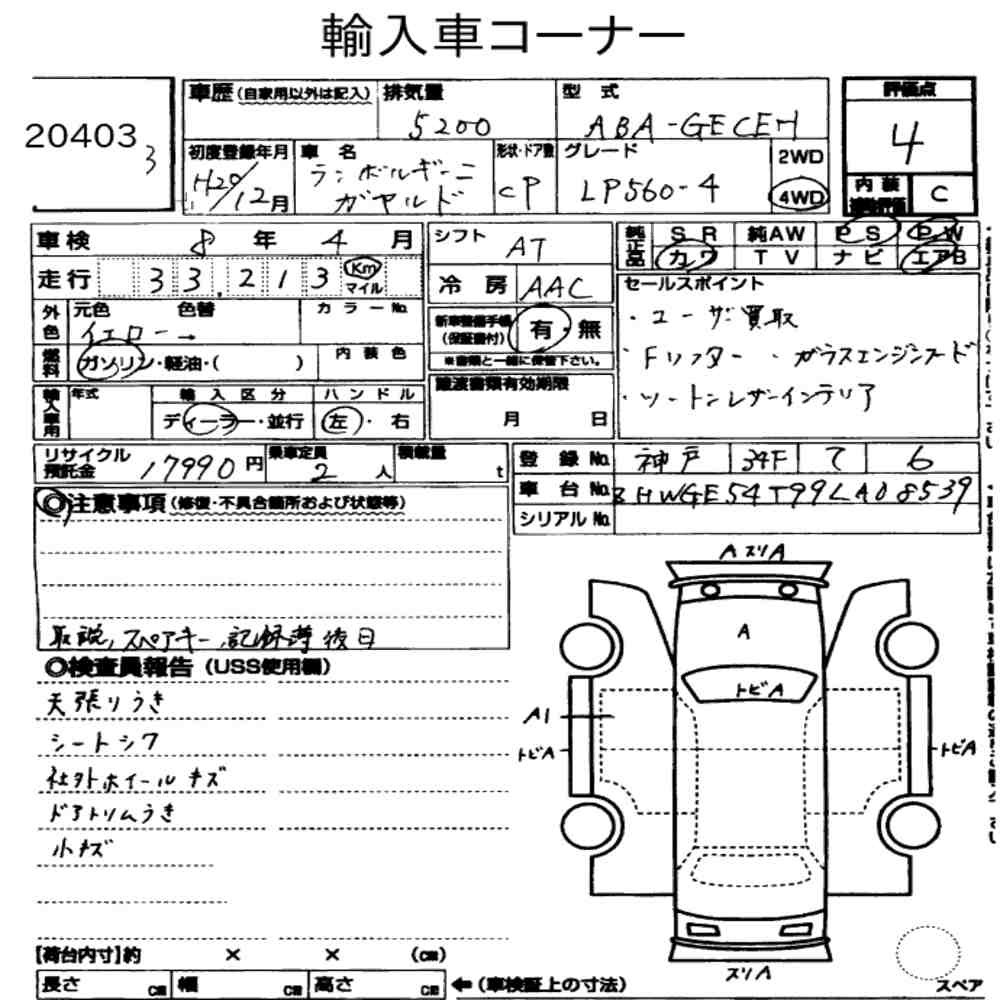 輸入車コーナー
20403
3
車歴 (自家用以外は記入) 排気量 5200 型式 ABA-GECEH
評価点 4
内装 C
初度登録年月 H20/12月 車名 ランボルギーニ ガヤルド 形状・ドア数 CP グレード LP560-4 2WD 4WD
車検 8年 4月
シフト AT
純正品 SR 純AW PS PW
カワ TV ナビ エアB
走行 33,213 Km マイル
冷房 AAC
セールスポイント
・ユーザ買取
・Fリフター ・ガラスエンジンフード
・ツートンレザーインテリア
外色 元色 イエロー→ 色替 カラーNo.
新車整備手帳 (保証書付) 有・無
※書類と一緒に保管下さい。
燃料 ガソリン・軽油・( ) 内装色
譲渡書類有効期限
月 日
輸入車用 年式 輸入区分 ディーラー・並行 ハンドル 左・右
リサイクル預託金 17990円 乗車定員 2人 積載量 t
登録No. 神戸 34F て 6
車台No. ZHWGE54T99LA08539
シリアルNo.
◎注意事項 (修復・不具合箇所および状態等)
取説,スペアキー,記録簿後日
◎検査員報告 (USS使用欄)
天張りうき
シートシワ
社外ホイールキズ
ドアトリムうき
小キズ
AスリA
A
トビA
A1
トビA
トビA
スリA
スペア
【荷台内寸】約 × × (cm)
長さ cm 幅 cm 高さ cm ←(車検証上の寸法)